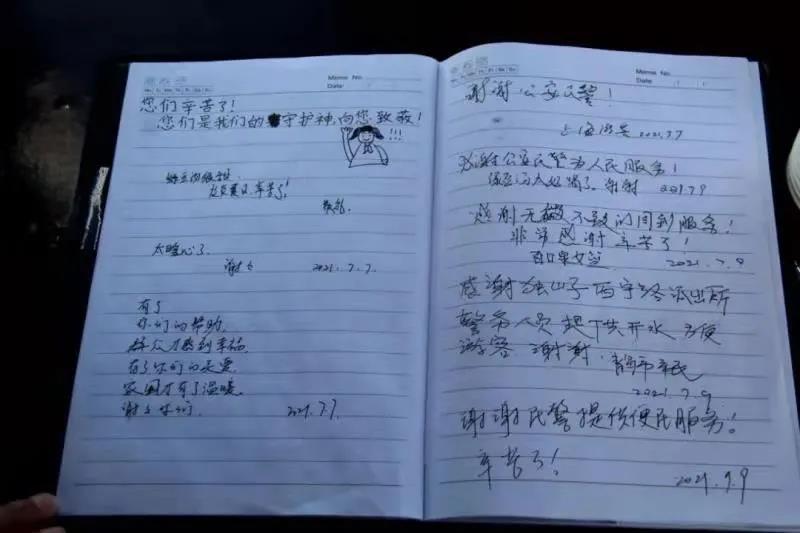 Memo No.
Date
您们辛苦了!
您们是我们的守护神,向您致敬!
!!!
辛苦了!
致敬
太暖心了
谢谢 2021.7.7
有了
你们的帮助,
群众才感到幸福
有了你们的
家园才有了温暖
谢谢你们 2021.7.7
Memo No.
Date
谢谢公安民警!
上海游客 2021.7.7
感谢公安民警为人民服务!
谢谢 2021.7.9
感谢无微不致的周到服务!
非常感谢 辛苦了!
2021.7.9
感谢独山子西宁路派出所
警务人员提供开水 方便
游客 谢谢.青岛市市民
2021.7.9
谢谢民警提供便民服务!
辛苦了! 2021.7.9